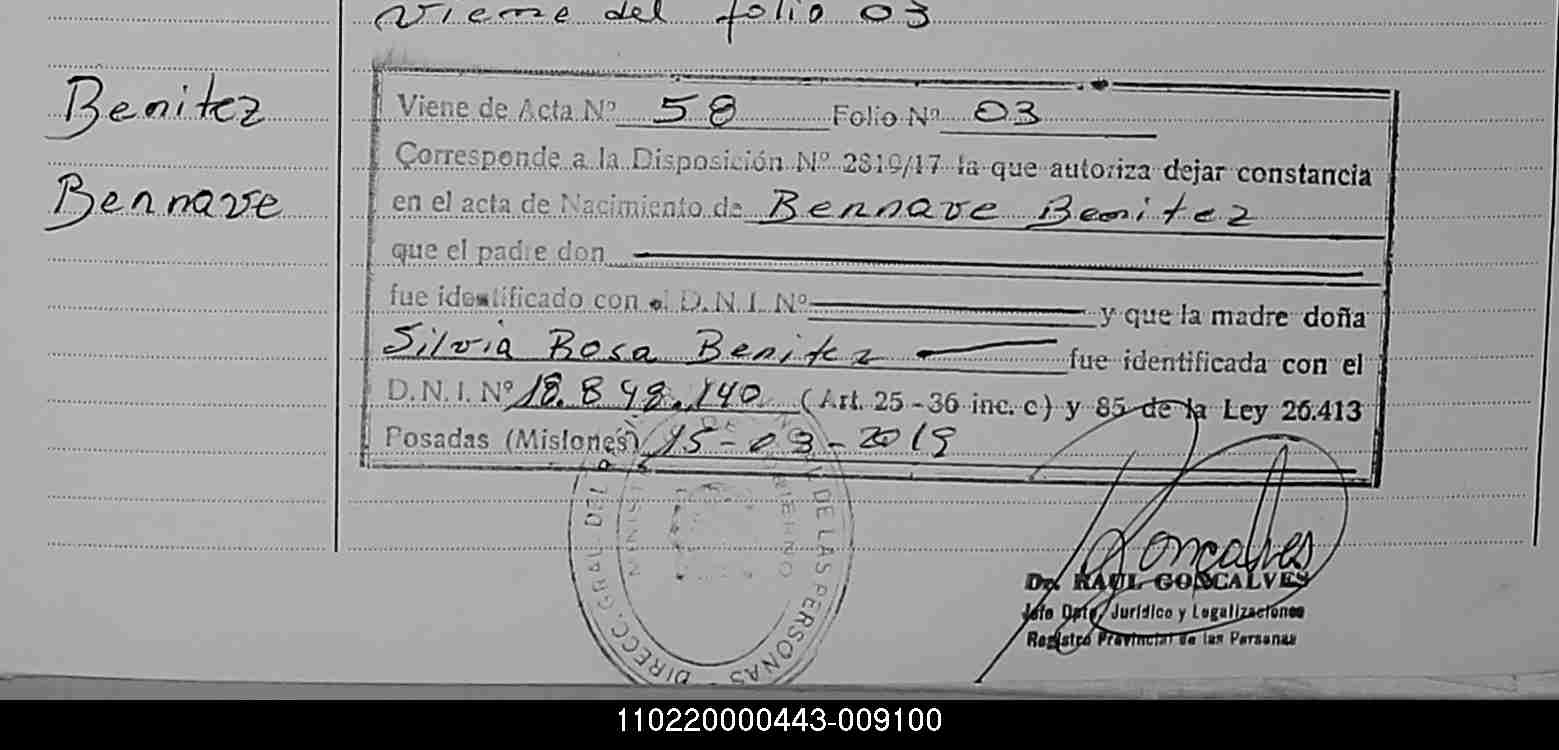 Viene del folio 03
Benitez
Bennave
Viene de Acta Nº 58 Folio Nº 03
Corresponde a la Disposición Nº 2819/17 la que autoriza dejar constancia
en el acta de Nacimiento de Bennave Benitez
que el padre don
fue identificado con el D.N.I. Nº y que la madre doña
Silvia Rosa Benitez fue identificada con el
D.N.I. Nº 18.848.140 (Art. 25-36 inc. c) y 85 de la Ley 26.413
Posadas (Misiones) 15-03-2019
DIRECC. GRAL. DEL DE LAS PERSONAS
Goncalves
Dr. RAUL GONCALVES
Jefe Dpto. Jurídico y Legalizaciones
Registro Provincial de las Personas
110220000443-009100